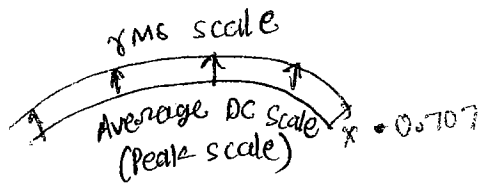 rMS scale
Average DC Scale
(Peak scale)
x • 0.707